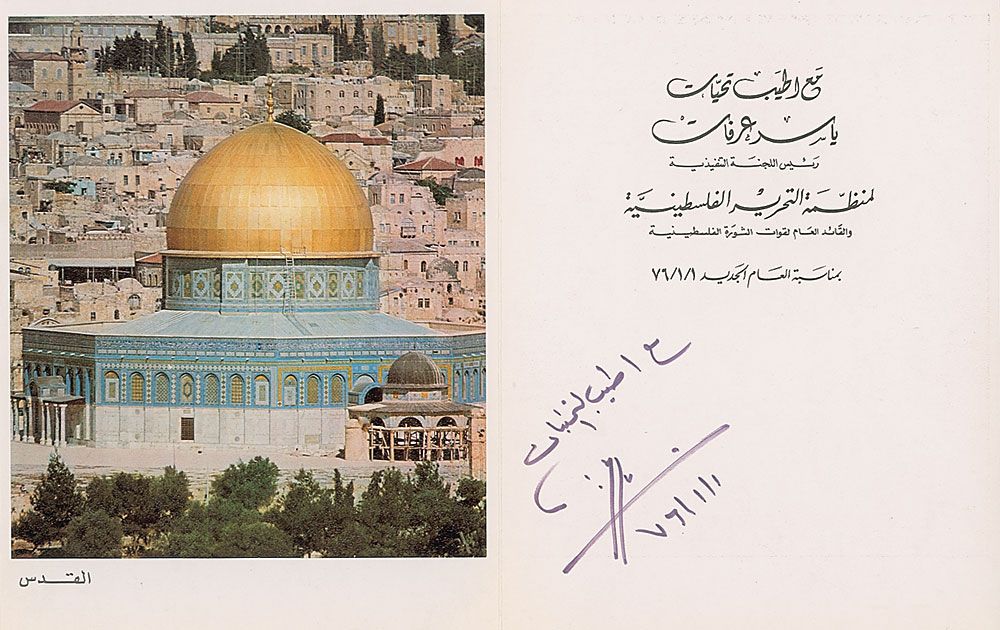 مع اطيب تحيات
ياسر عرفات
رئيس اللجنة التنفيذية
لمنظمة التحرير الفلسطينية
والقائد العام لقوات الثورة الفلسطينية
بمناسبة العام الجديد ٧٦/١/١
مع اطيب التمنيات
٧٦/١/١
القدس